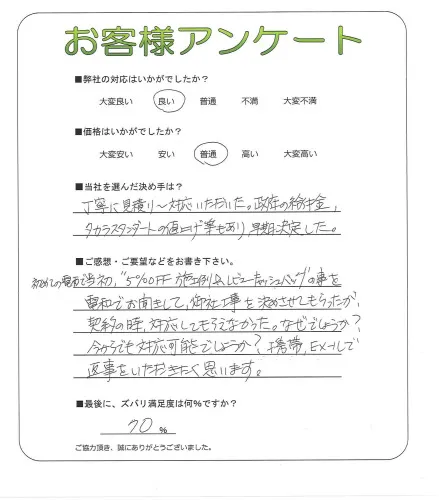 お客様アンケート
■弊社の対応はいかがでしたか?
大変良い 良い 普通 不満 大変不満
■価格はいかがでしたか?
大変安い 安い 普通 高い 大変高い
■当社を選んだ決め手は?
丁寧に見積り〜対応いただいた。政府の給付金、
タカラスタンダートの値上げ等もあり、早期決定した。
■ご感想・ご要望などをお書き下さい。
初めての電話で当初、"5%OFF 施工例&レビューキャッシュバック"の事を
電話でお聞きして、御社工事を決めさせてもらったが、
契約の時、対応してもらえなかった。なぜでしょうか?
今からでも対応可能でしょうか? 携帯、Eメールで
返事をいただきたく思います。
■最後に、ズバリ満足度は何%ですか?
70 %
ご協力頂き、誠にありがとうございました。